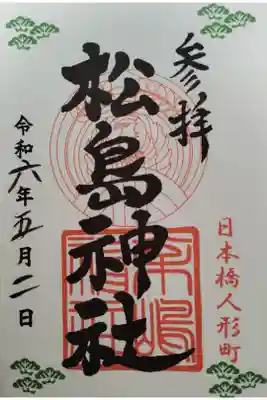 参拝
松島神社
日本橋人形町
令和六年五月二日